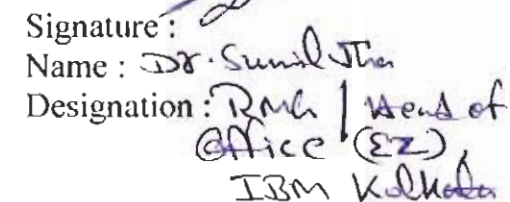 Signature :
Name : Dr. Sunil Jha
Designation : RMG | Head of
Office (EZ),
IBM Kolkata